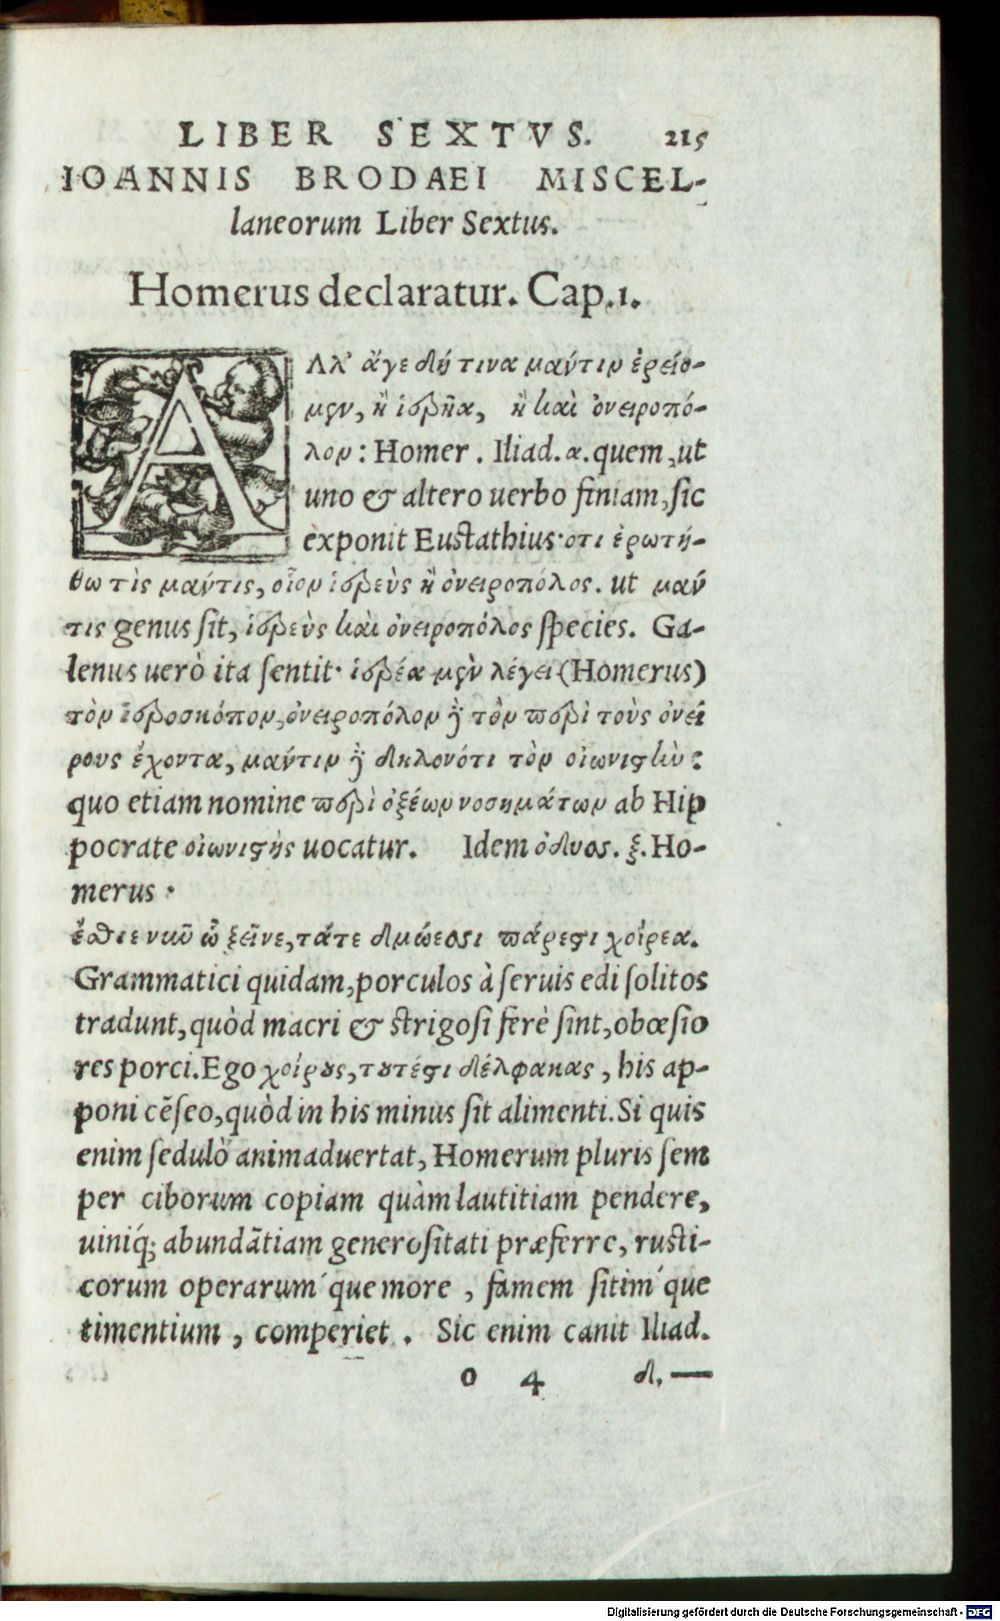 LIBER SEXTVS. 215
IOANNIS BRODAEI MISCEL-
laneorum Liber Sextus.
Homerus declaratur. Cap.1.
ΑΛλ' ἄγε δή τινα μάντιν ἐρείο-
μεν, ἢ ἱερῆα, ἢ καὶ ὀνειροπό-
λον: Homer. Iliad. α. quem, ut
uno & altero uerbo finiam, sic
exponit Eustathius· οτι ἐρωτή-
θω τὶς μάντις, οἷον ἱερεὺς ἢ ὀνειροπόλος. ut μάν
τις genus sit, ἱερεὺς καὶ ὀνειροπόλος species. Ga-
lenus uerò ita sentit· ἱερέα μὲν λέγει (Homerus)
τὸν ἱεροσκόπον, ὀνειροπόλον ἢ τὸν περὶ τοὺς ὀνεί
ρους ἔχοντα, μάντιν ἢ δηλονότι τὸν οἰωνιστὴν:
quo etiam nomine περὶ ὀξέων νοσημάτων ab Hip
pocrate οἰωνιστὴς uocatur. Idem ὀδυσ. ξ. Ho-
merus·
ἔσθιε νιῦ ὦ ξεῖνε, τάτε δμώεσι πάρεστι χοίρεα.
Grammatici quidam, porculos à seruis edi solitos
tradunt, quòd macri & strigosi ferè sint, obœsio
res porci. Ego χοίρους, τουτέστι δέλφακας, his ap-
poni cẽseo, quòd in his minus sit alimenti. Si quis
enim sedulò animaduertat, Homerum pluris sem
per ciborum copiam quàm lautitiam pendere,
uiniq́; abundãtiam generositati præferre, rusti-
corum operarum´que more, famem sitim´que
timentium, comperiet. Sic enim canit Iliad.
o 4 δ,—
Digitalisierung gefördert durch die Deutsche Forschungsgemeinschaft - DFG